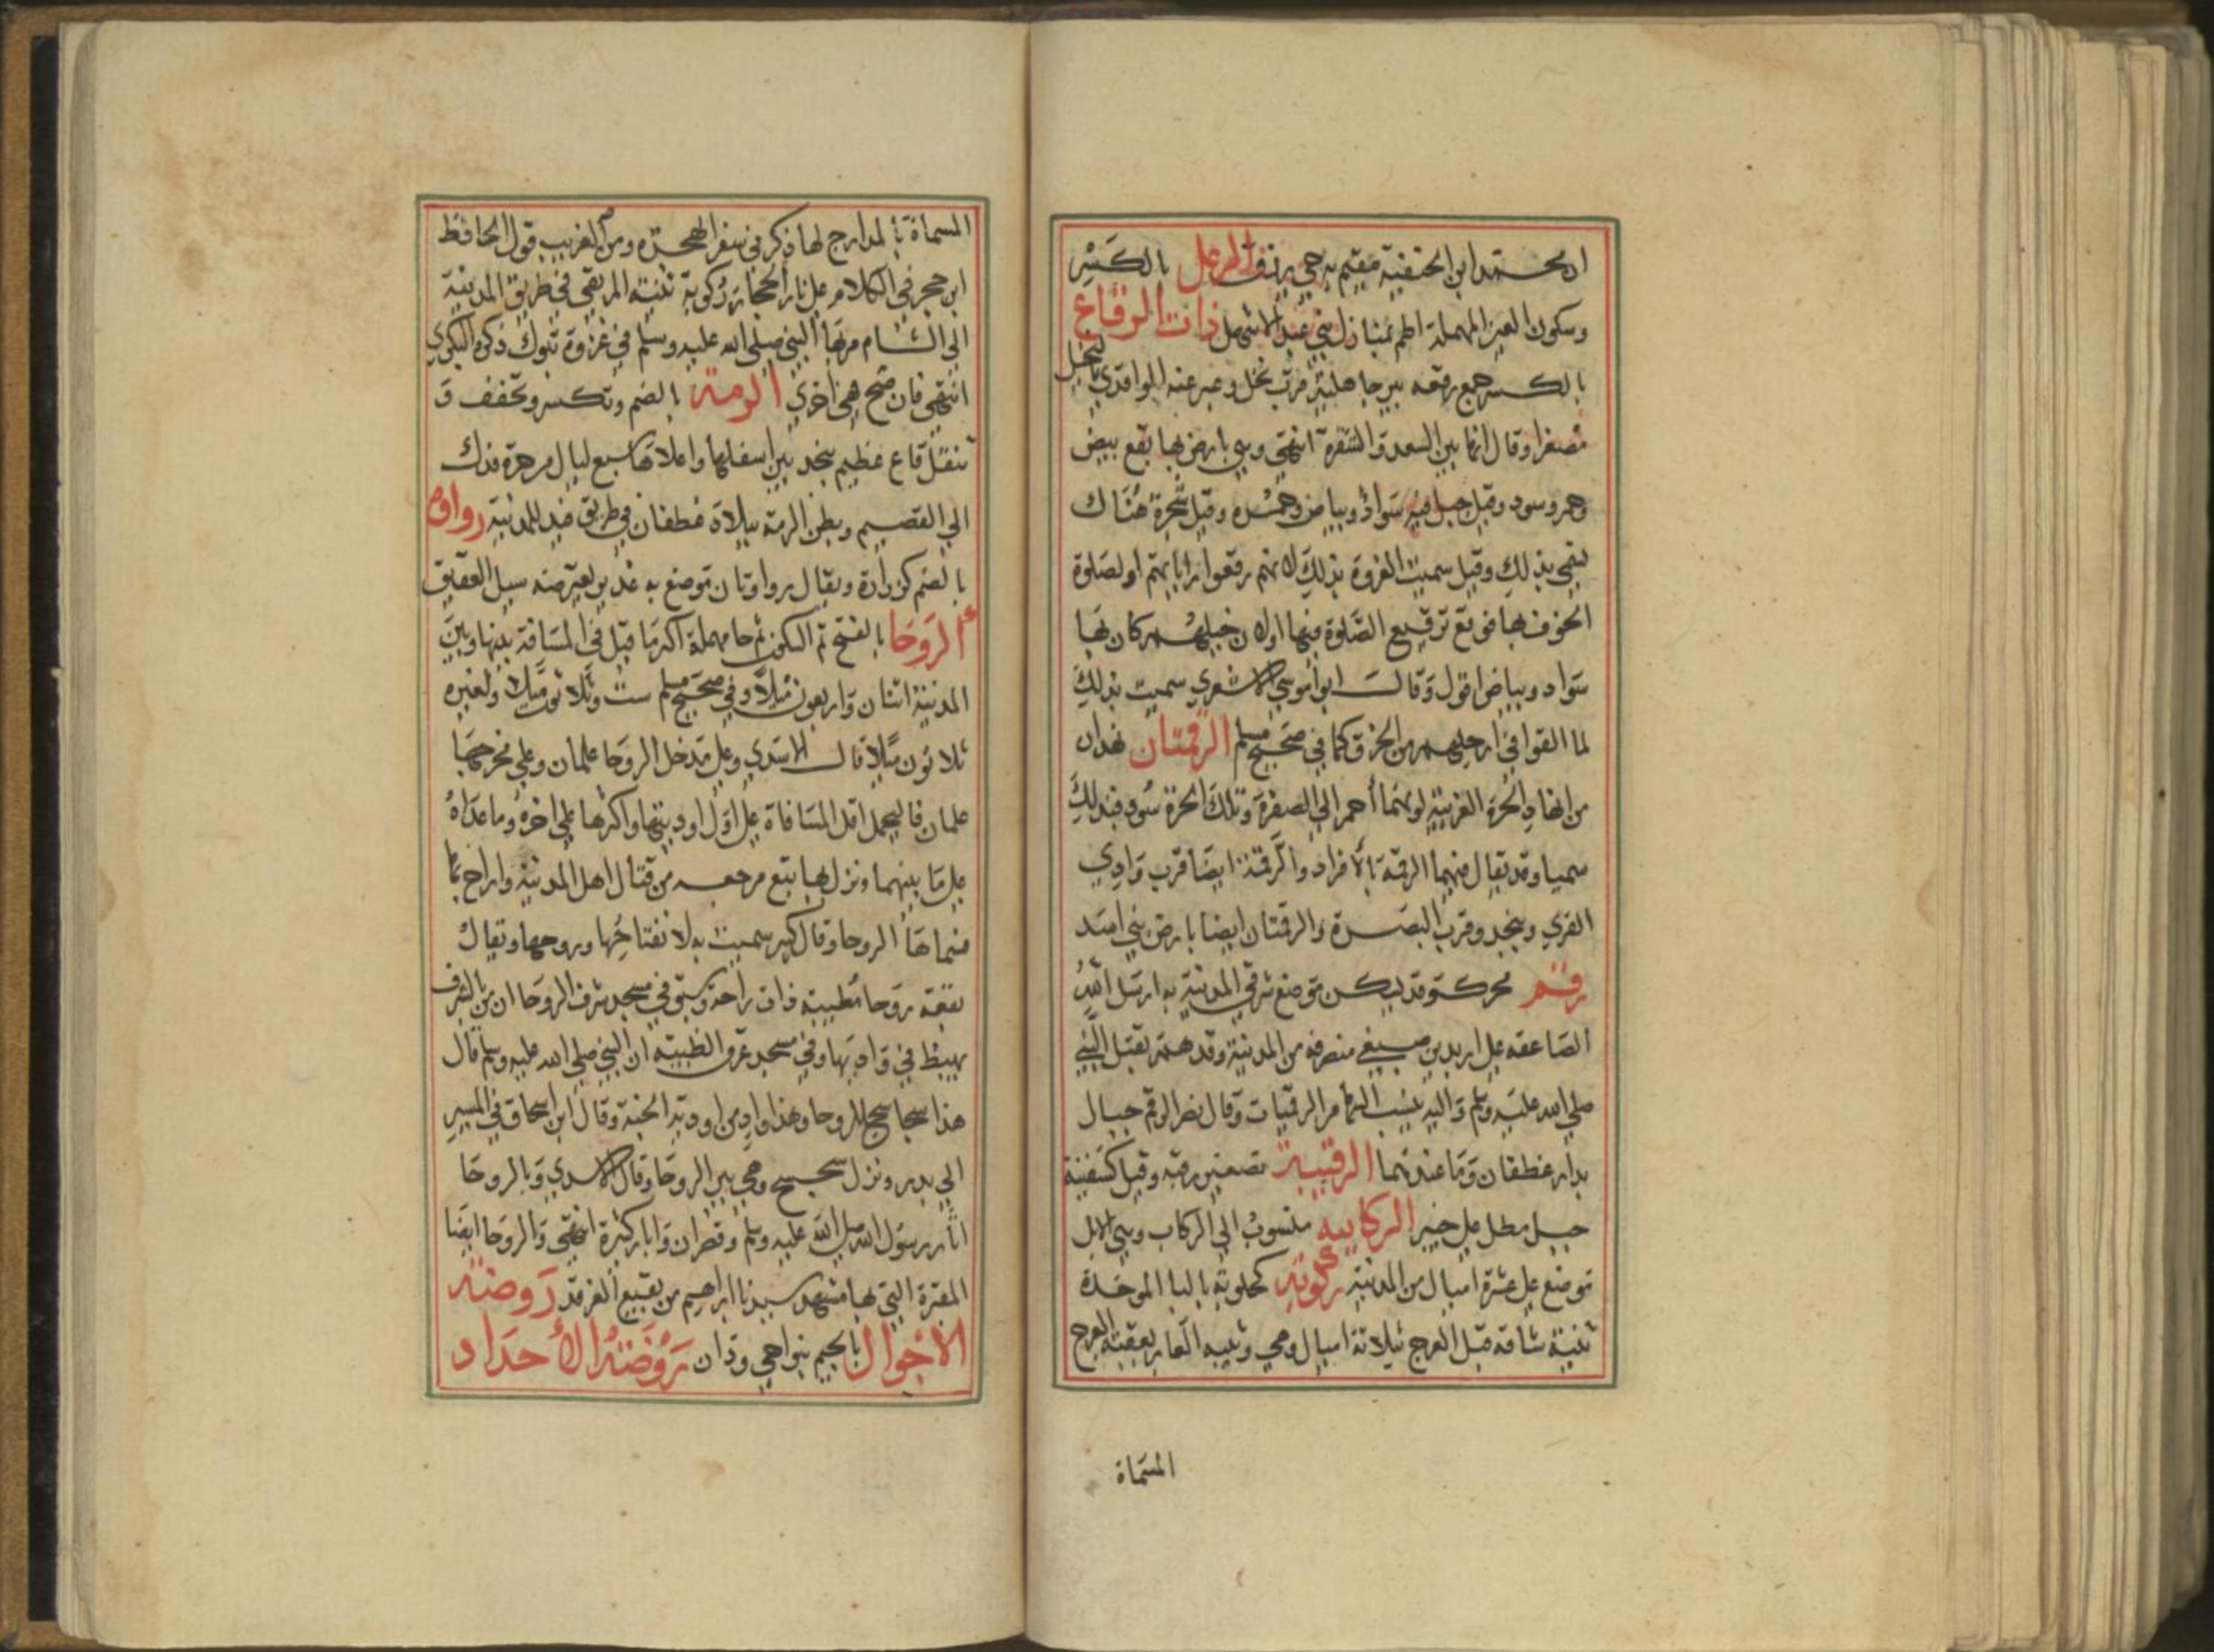 ان محمد ابن الحنفية مقيم به حي يرزق الرعل بالكَسْرِ
وسكون العين المهملة اطم بمنازل بني عبد الاشهل ذات الرقاع
بالكسر جمع رقعه بير جاهلية قرب نخل وعبر عنه الواقدي بالنخيل
مصغرا وقال انها بين السعد والشقرة انتهى وهي بارض بها بقع بيض
وحمر وسود وقيل جبل فيه سَوادٌ وبياض وحمُره وقيل شجرة هُنَاك
تسمى بذلك وقيل سميت الغزوة بذلك لانهم رقعوا راياتهم او لصلوة
الخوف بها فوقع ترقيع الصَّلوة فيها اولان خيلهُم كان بها
سَواد وبياض اقول وَقالت ابو اموسي الاشعري سميت بذلك
لما القوا في ارجلهم من الخرق كما في صحيح مسلم الرقمتان نهدان
من انهاد الحرّة الغربية لونهما أحمر الي الصفرة وتلك الحرة سُود فبذلك
سميا وقد يقال فيهما الرقمة بالافراد والرقمة ايضا قرب وَادِي
القري وبنجد وقرب البصرة والرقمتان ايضا بارض بني اسد
رقم محركة وقد يسكن موضع شرقي المدينة به ارسَل اللهُ
الصاعقه علي اربد بن صيفي منصرفه من المدينة وقد همّ بقتل النبي
صلي الله عليه وسلم وَاليه ينسب السهام الرقميات وقال نصر الرقم جبال
بدار غطفان وَما عندهما الرقيبة تصغير رقبه وقيل كسفينة
جبل مطل علي خيبر الركابيه منسوبُ الي الركاب وهي الابل
موضع علي عشرة اميال من المدينة ركوبة كحلوبة بالبا الموحدة
ثنية شاقه قبل العرج بثلاثة اميال وهي وثنيه العاير بعقبة العرج
المسَماة
المسماة بالمدارج لها ذكر في سفر الهجرة ومن الغريب قول الحافظ
ابن حجر في الكلام علي نار الحجاز رَكوبة ثنيته المرتقي في طريق المدينة
الي الشام مر بها النبي صلي الله عليه وسلم في غزوة تبوك ذكره البكري
انتهي فان صح فهي اخري الرمة بالضم وتكسر وتخفف وَ
تثقل قاع عظيم بنجد بين اسفلها واعلاها سبع ليال من حرة فدك
الي القصيم وبطن الرمة ببلاد غطفان في طريق فيد للمدينة رواوه
بالضم كزرارة ويقال رواوتان موضع به غدير يعترضه سيل العقيق
الرَوحَا بالفتح ثم السكون ثم حا مهملة اكثر ما قيل في المسَافة بينها وبين
المدينة اثنان وَاربعون مَيلاً وفي صحيح مسلم ست وَثلاثون مَيلا ولغيره
ثلاثون ميَلا قال الاسَدي وعلي مَدخل الروحا علمان وعلي مخرجها
علمان فاليحمل اقل المسافاة علي اوّل اوديتها واكثرها علي اخره وما عداهُ
علي مَا بينهما ونزل بها تبع مرجعه من قتال اهل المدينة واراح بها
فسماها الروحا وقال كثير سميت به لانفتاحِها وروحها وتقال
بقعة روحا طيبة ذات راحة وسبق في مسجد شرف الروحا ان من الشرف
يهبط في وَاديها وفي مسجد عرق الظبية ان النبي صلي الله عليه وسلم قال
هذا سجاسج للروحا وهذا وادٍ من اودية الجنة وقال ابن اسحاق في المسير
الي بدر ونزل سجسج وهي بير الروحَا وقال الاسدي وَبالروحَا
اثار رسَول الله صلي الله عليه وسلم وقصران وَابار كثيرة انتهي والروحا ايضا
المقبرة التي بها مشهد سيدنا ابراهيم من بقيع الغرقد رَوضة
الاجْوال بالجيم بنواحي ودّان رَوْضَةُ الأحدَاد